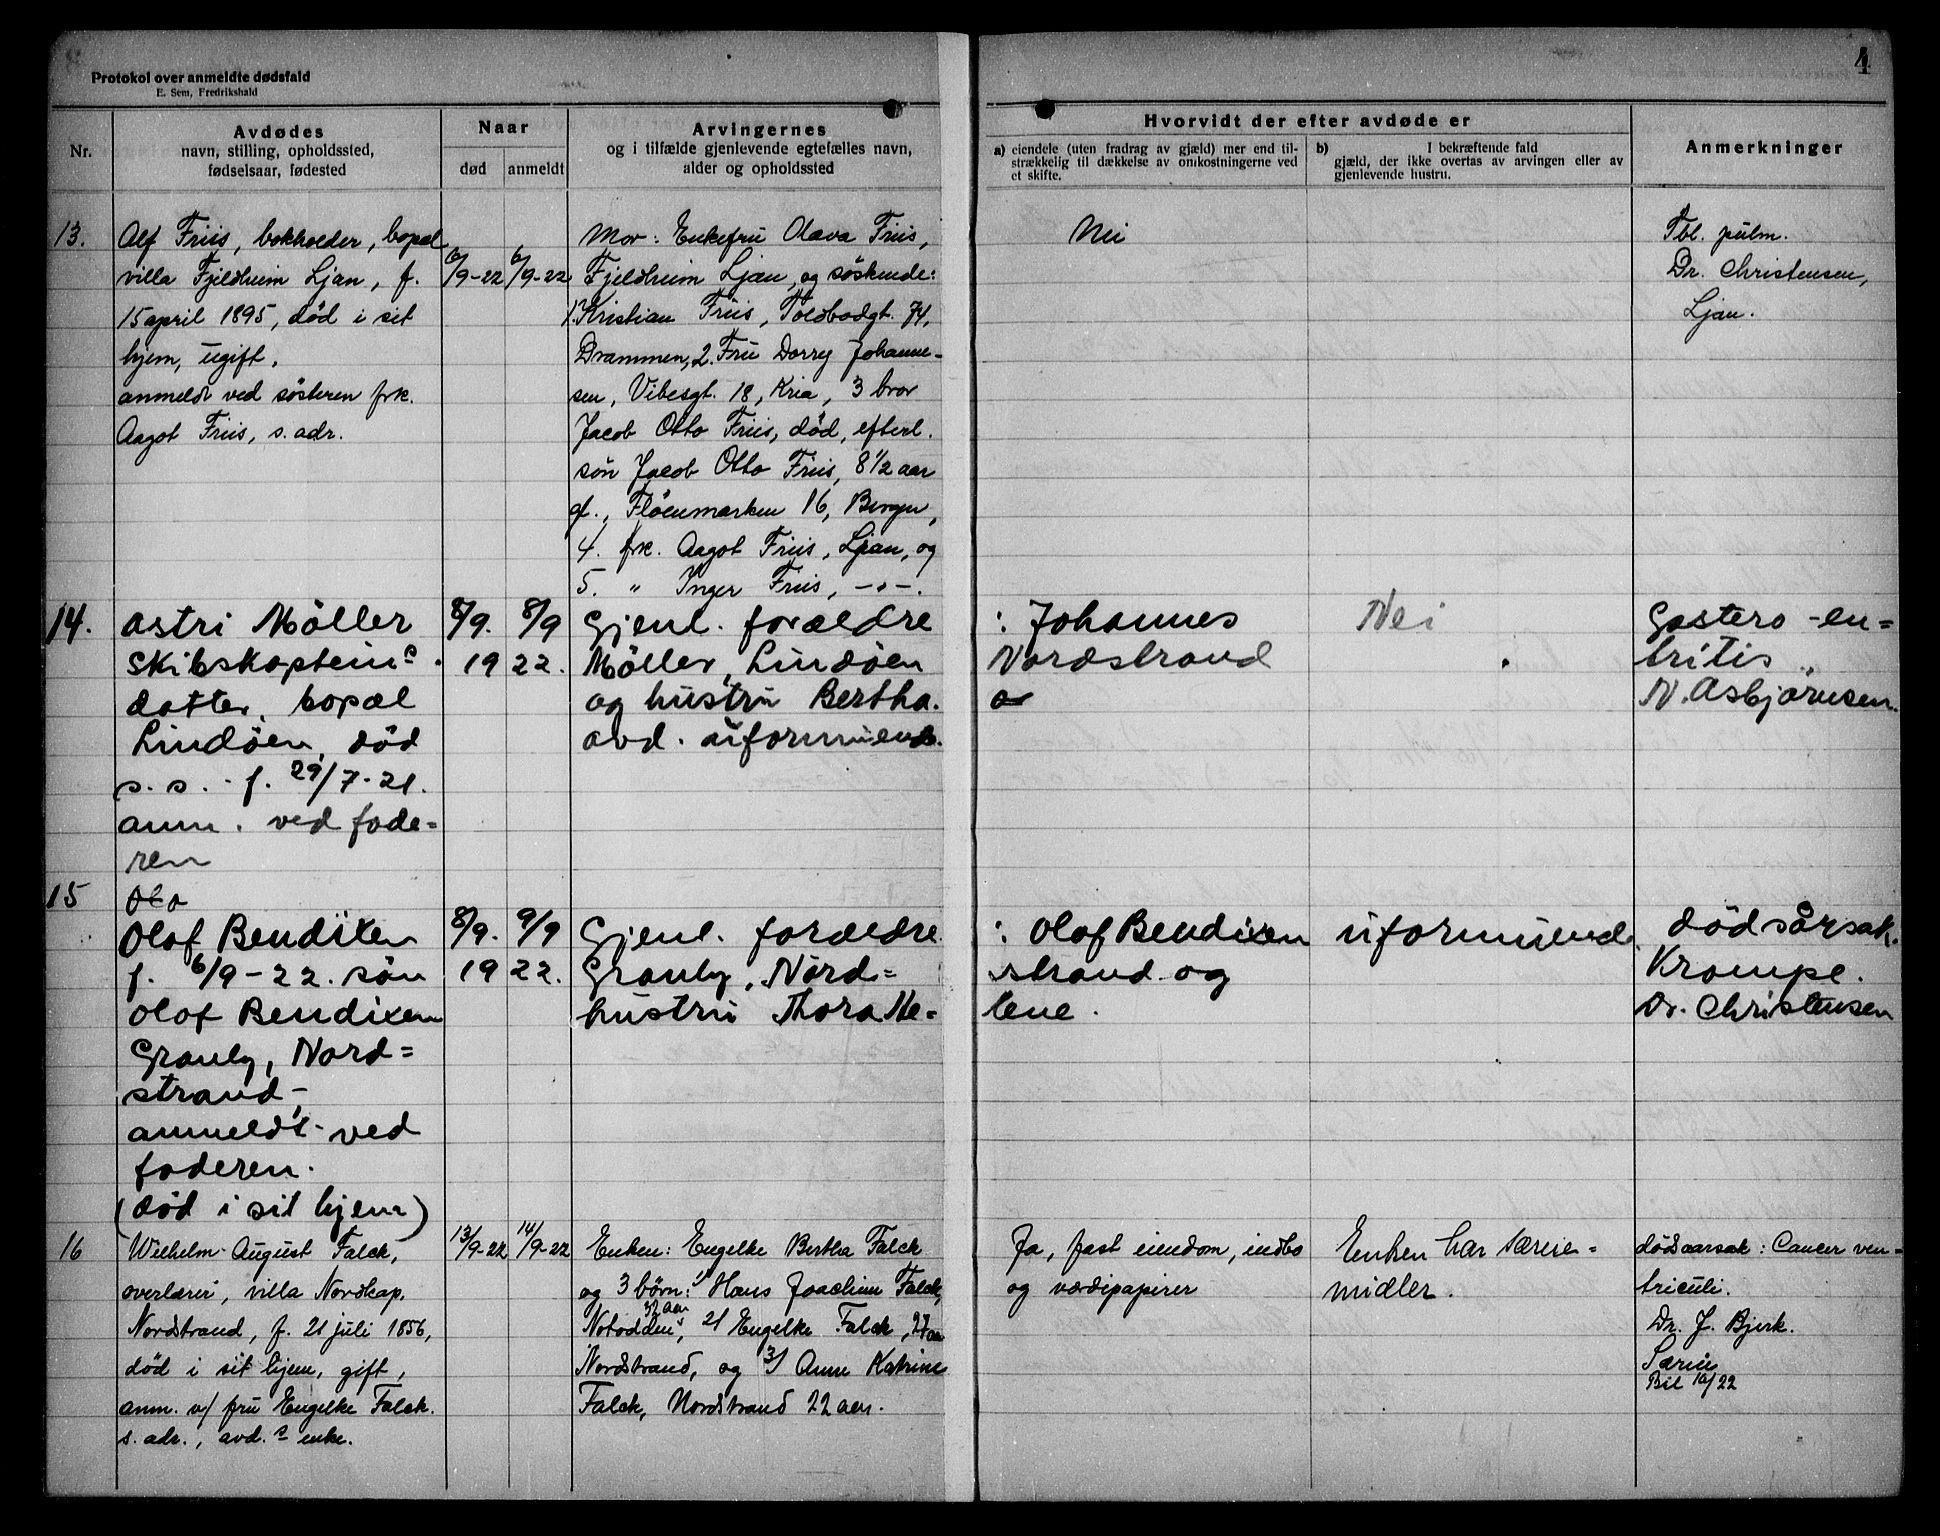 4
Protokol over anmeldte dødsfald
E. Sem, Fredrikshald
Nr.
Avdødes
navn, stilling, opholdssted,
fødselsaar, fødested
Naar
død
anmeldt
Arvingernes
og i tilfælde gjenlevende egtefælles navn,
alder og opholdssted
Hvorvidt der efter avdøde er
a) eiendele (uten fradrag av gjæld) mer end til-
strækkelig til dækkelse av omkostningerne ved
et skifte.
b) I bekræftende fald
gjæld, der ikke overtas av arvingen eller av
gjenlevende hustru.
Anmerkninger
13.
Alf Friis, bokholder, bopæl
villa Fjeldheim Ljan, f.
15 april 1895, død i sit
hjem, ugift.
anmeldt ved søsteren frk.
Aagot Friis, s. adr.
6/9-22
6/9-22
Mor: Enkefru Olava Friis,
Fjeldheim Ljan, og søskende:
1. Kristian Friis, Toldbodgt. 74,
Drammen, 2. Fru Dorry Johanne-
sen, Vibesgt. 18, Kria, 3 bror
Jacob Otto Friis, død, efterl.
søn Jacob Otto Friis, 8 1/2 aar
gl., Fløenmarken 16, Bergen,
4. frk. Aagot Friis, Ljan, og
5. " Inger Friis, -"-.
Nei
Tbl. pulm.
Dr. Christensen,
Ljan.
14.
Astri Møller
skibskapteins
datter, bopæl
Lindøen, død
s. s. - f. 29/7-21.
anm. ved fade=
ren
8/9.
19
8/9
22.
Gjenl. forældre
Møller, Lindøen
og hustru Bertha.
avd. uformuende.
: Johannes
Nordstrand
Nei
Gastero-en=
tritis
N. Asbjørnsen.
15
Olof Bendixen
f. 6/9-22. søn
Olof Bendixen
Granly, Nord=
strand-
anmeldt ved
faderen.
(død i sit hjem)
8/9.
19
9/9
22.
Gjenl. forældre
Granly, Nord=
hustru Thora He=
: Olof Bendixen
strand og
lene.
uformuende.
dødsårsak.
Krampe.
Dr. Christensen
16
Wilhelm August Falck,
overlærer, villa Nordkap,
Nordstrand, f. 21 juli 1856,
død i sit hjem, gift,
anm. v/ fru Engelke Falck.
s. adr., avd.s enke.
13/9-22
14/9-22
Enken: Engelke Bertha Falck
og 3 børn: 1/ Hans Joachim Falck,
Notodden, 32 aar, 2/ Engelke Falck, 27 aar
Nordstrand, og 3/ Anne Katrine
Falck, Nordstrand 22 aar.
Ja, fast eiendom, indbo
og værdipapirer
Enken har særeie-
midler.
dødsaarsak: Cancer ven-
triculi.
Dr. J. Bjerk.
Særeie
Bil 10/22